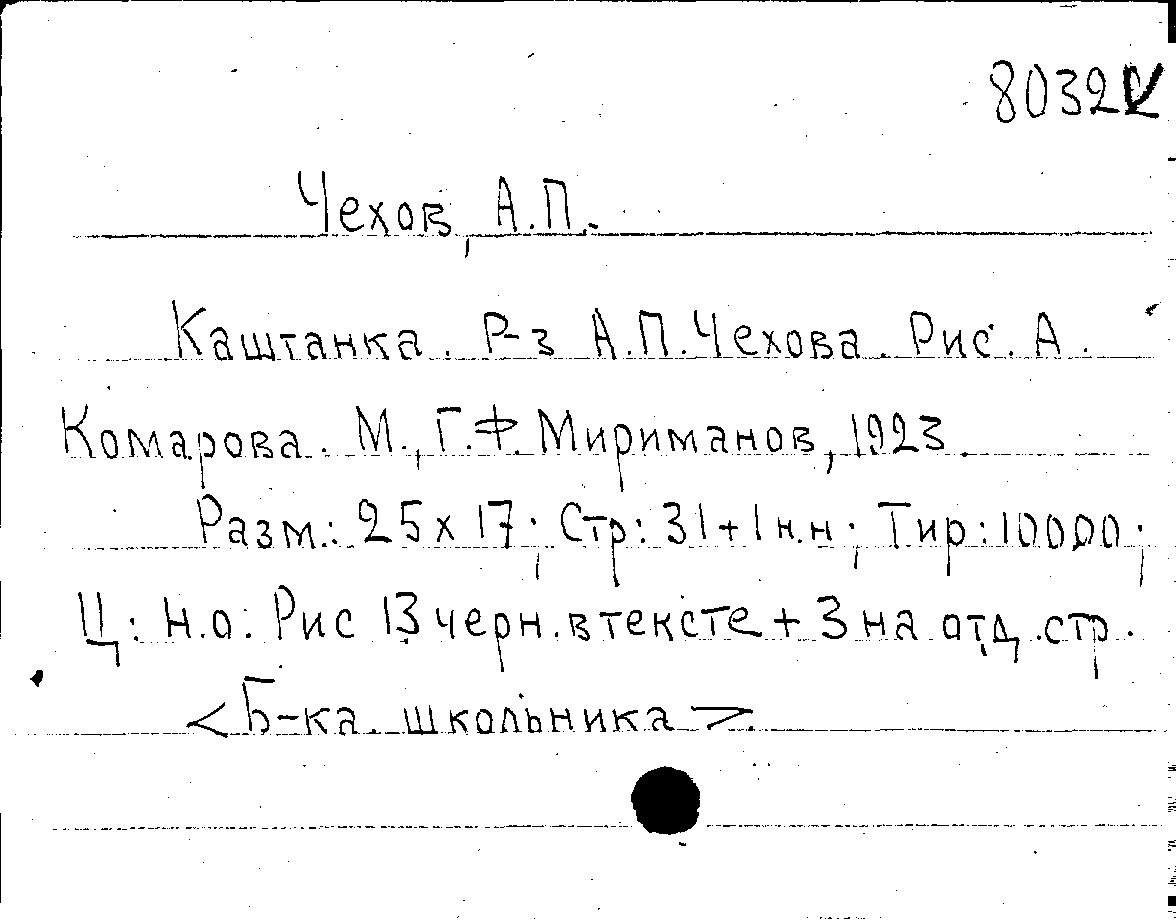 8032
Чехов, А.П.
Каштанка. Р-з А.П.Чехова. Рис. А.
Комарова. М., Г.Ф.Мириманов, 1923.
Разм.: 25х17; Стр: 31+1н.н; Тир:10000;
Ц: н.о. Рис 13 черн. в тексте + 3 на отд. стр.
<Б-ка школьника>.